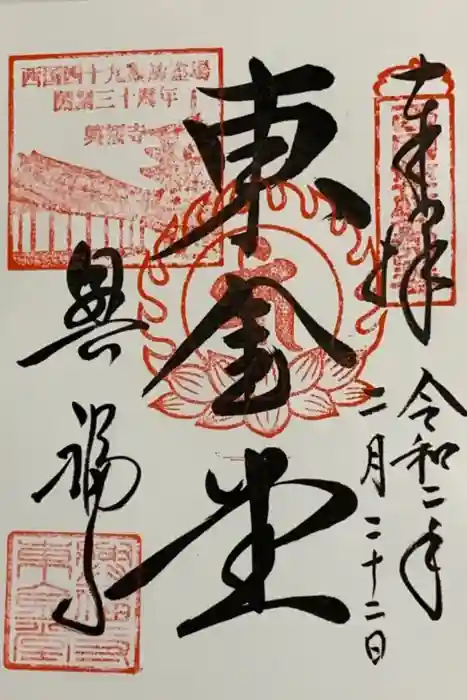 奉拝
令和二年
二月二十二日
東金堂
興福寺
西国四十九薬師霊場
開創三十周年
興福寺